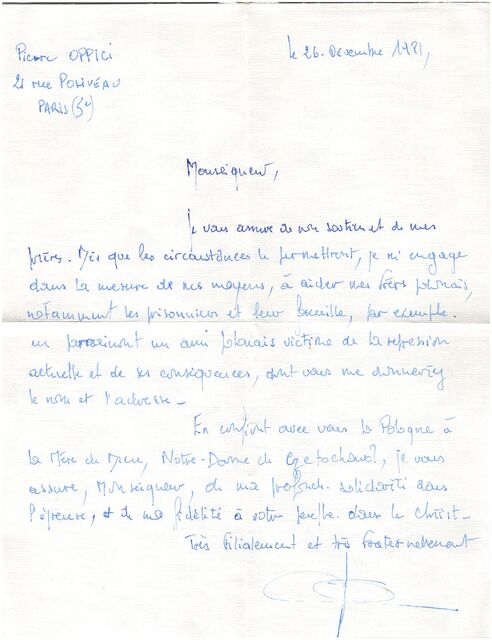 Pierre OPPICI
le 26. Décembre 1981,
21 rue POLIVEAU
PARIS (5e)
Monseigneur,
Je vous assure de mon soutien et de mes
prières. Dès que les circonstances le permettront, je m'engage
dans la mesure de mes moyens, à aider mes frères polonais,
notamment les prisonniers et leur famille, par exemple
en parrainant un ami polonais victime de la répression
actuelle et de ses conséquences, dont vous me donneriez
le nom et l'adresse -
En confiant avec vous la Pologne à
la Mère de Dieu, Notre-Dame de Czestochowa, je vous
assure, Monseigneur, de ma profonde solidarité dans
l'épreuve, et de ma fidélité à votre peuple dans le Christ -
Très filialement et très fraternellement